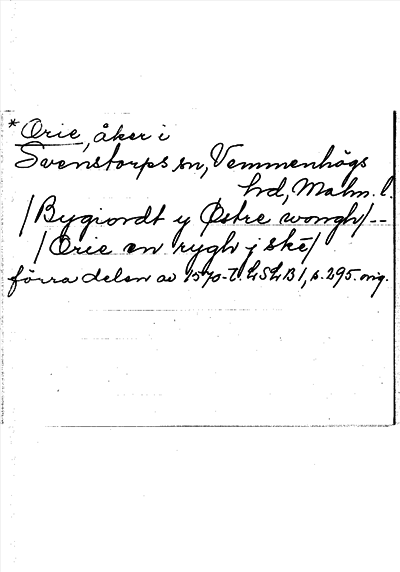 *Orie, åker i
Svenstorps sn, Vemmenhögs
hd, Malm. l.
/Bygiordt y Østre wongh/--
/Orie en rygh j skē/
förra delen av 1570-t. LSLB 1, s. 295. orig.